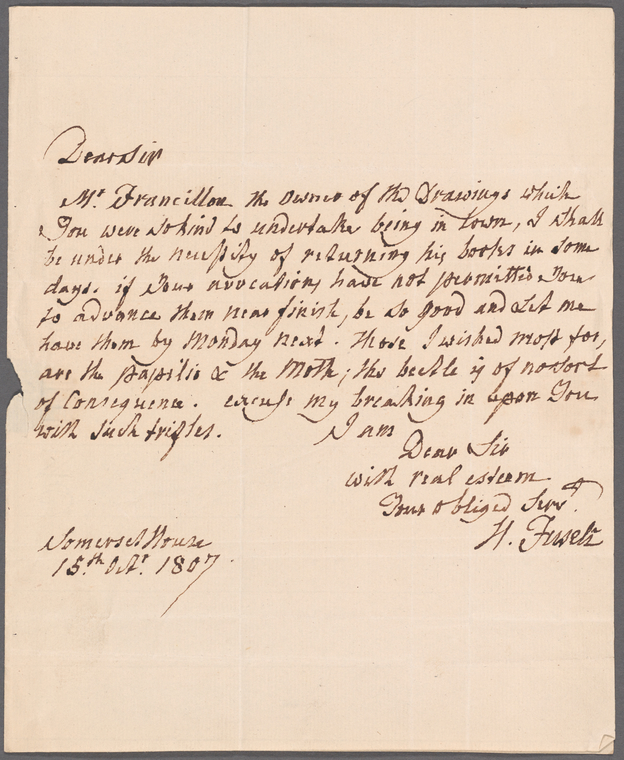 Dear Sir
Mr. Francillon the owner of the Drawings which
You were so kind to undertake being in Town, I shall
be under the necessity of returning his books in some
days. if Your avocations have not permitted You
to advance them near finish, be so good and let me
have them by Monday next. Those I wished most for,
are the papilio & the Moth; the beetle is of no sort
of Consequence. excuse my breaking in upon You
with such trifles. I am
Dear Sir
with real esteem
Your obliged Servt.
H. Fuseli
Somerset House
15.th Octr. 1807.